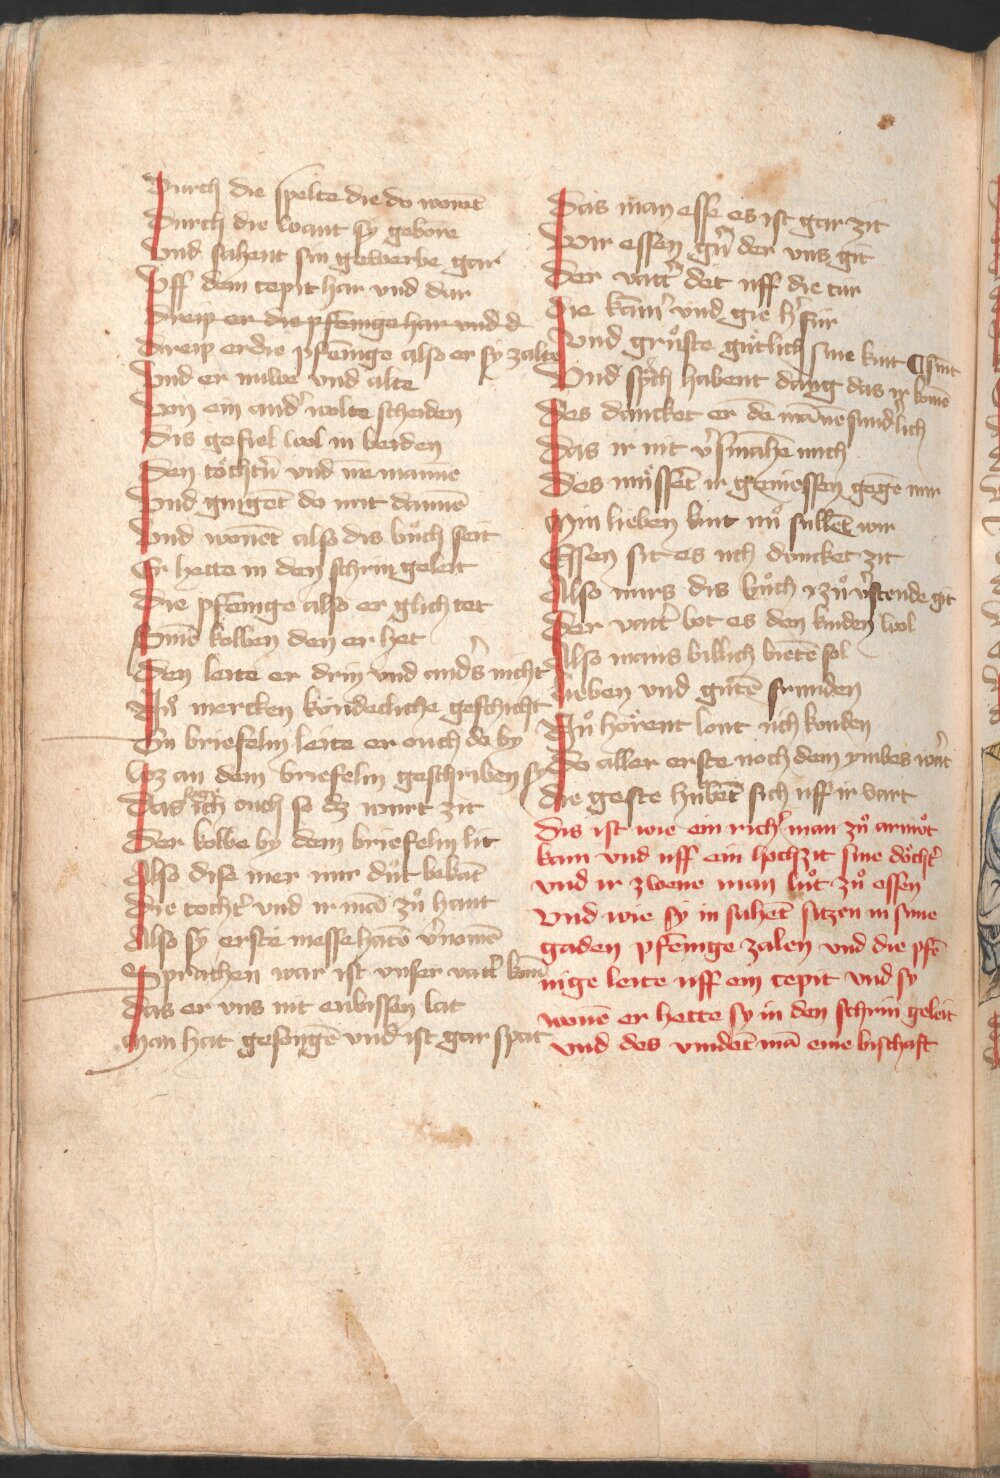 Durch die spelte die do worēt
Durch die logent sy gebore
Vnd sahent sin gewerbe gar
Vff dem tepit har vnd dar
Dreip er die pfēnige har vnd d
Dreip er die pfēnige also er sy zalte
Vnd er nuwe vnd alte
Von ein and' wolte scheiden
Dis gefiel wol in beiden
Den töcht'n vnd irē mannē
Vnd gingēt do mit dannē
Vnd wonēt also dis bůch seit
Er hette in den schrin geleit
Die pfēnige also er glich tet
Sinē kolben den er het
Den leite er drin vnd and's nicht
Nů mercken kündecliche geschicht
Ein briefelin leite er ouch do by
Waz an dem briefelin geschriben sy
Das sage ich ouch so dz wurt zit
Der kolbe by dem briefelin lit
Also dise mer mir důt bekāt
Die tocht' vnd ir mā zů hant
Also sy erste messe hatē v'nomē
Sprachen war ist vnser vatt' komē
Das er vns nit enbissen lat
Man hat gesongē vnd ist gar spat
Das man esse es ist gar zit
Wir essen g'n der vns git
Der vatt' det uff die tür
Die kam' vnd gie h' für
Vnd grůste gütlich sine kint
Vnd sp'ch habent dang das ir komē ¶ sint
Des dancket er dē mānē sund'lich
Das ir nit v'smahē mich
Des müssēt ir geniessen gegē mir
Min lieben kint nů sullēt wir
Essen sit es uch duncket zit
Also mirs dis bůch zů v'stende git
Der vatt' bot es den kinden wol
Also mans billich bietē sol
Lieben vnd gůtē frunden
Nů hörent lont uch konden
Do aller erste noch dem ymbes wart
Die geste hubēt sich uff ir vart
Dis ist wie ein rich' man zů armůt
kam vnd uff ein hochzit sine döcht'
vnd ir zwene man lůt zů essen
Vnd wie sy in sahēt sitzen in sime
gaden pfēnige zalen vnd die pfē
nige leite uff ein tepit vnd sy
wonē er hette sy in den schrin geleit
vnd des vindēt mā eine bischaft